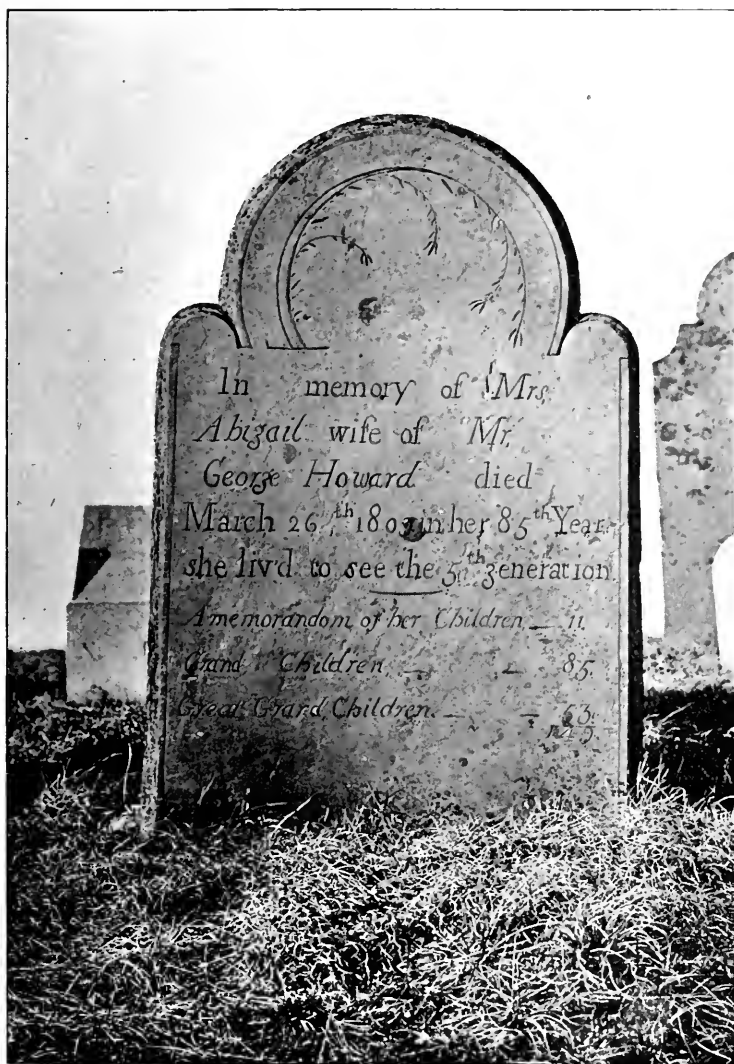 In memory of Mrs.
Abigail wife of Mr.
George Howard died
March 26th in her 85th Year
she liv'd to see the 5th generation.
A memorandom of her Children — 11.
Grand Children — — 85.
Great Grand Children — — 53.
149